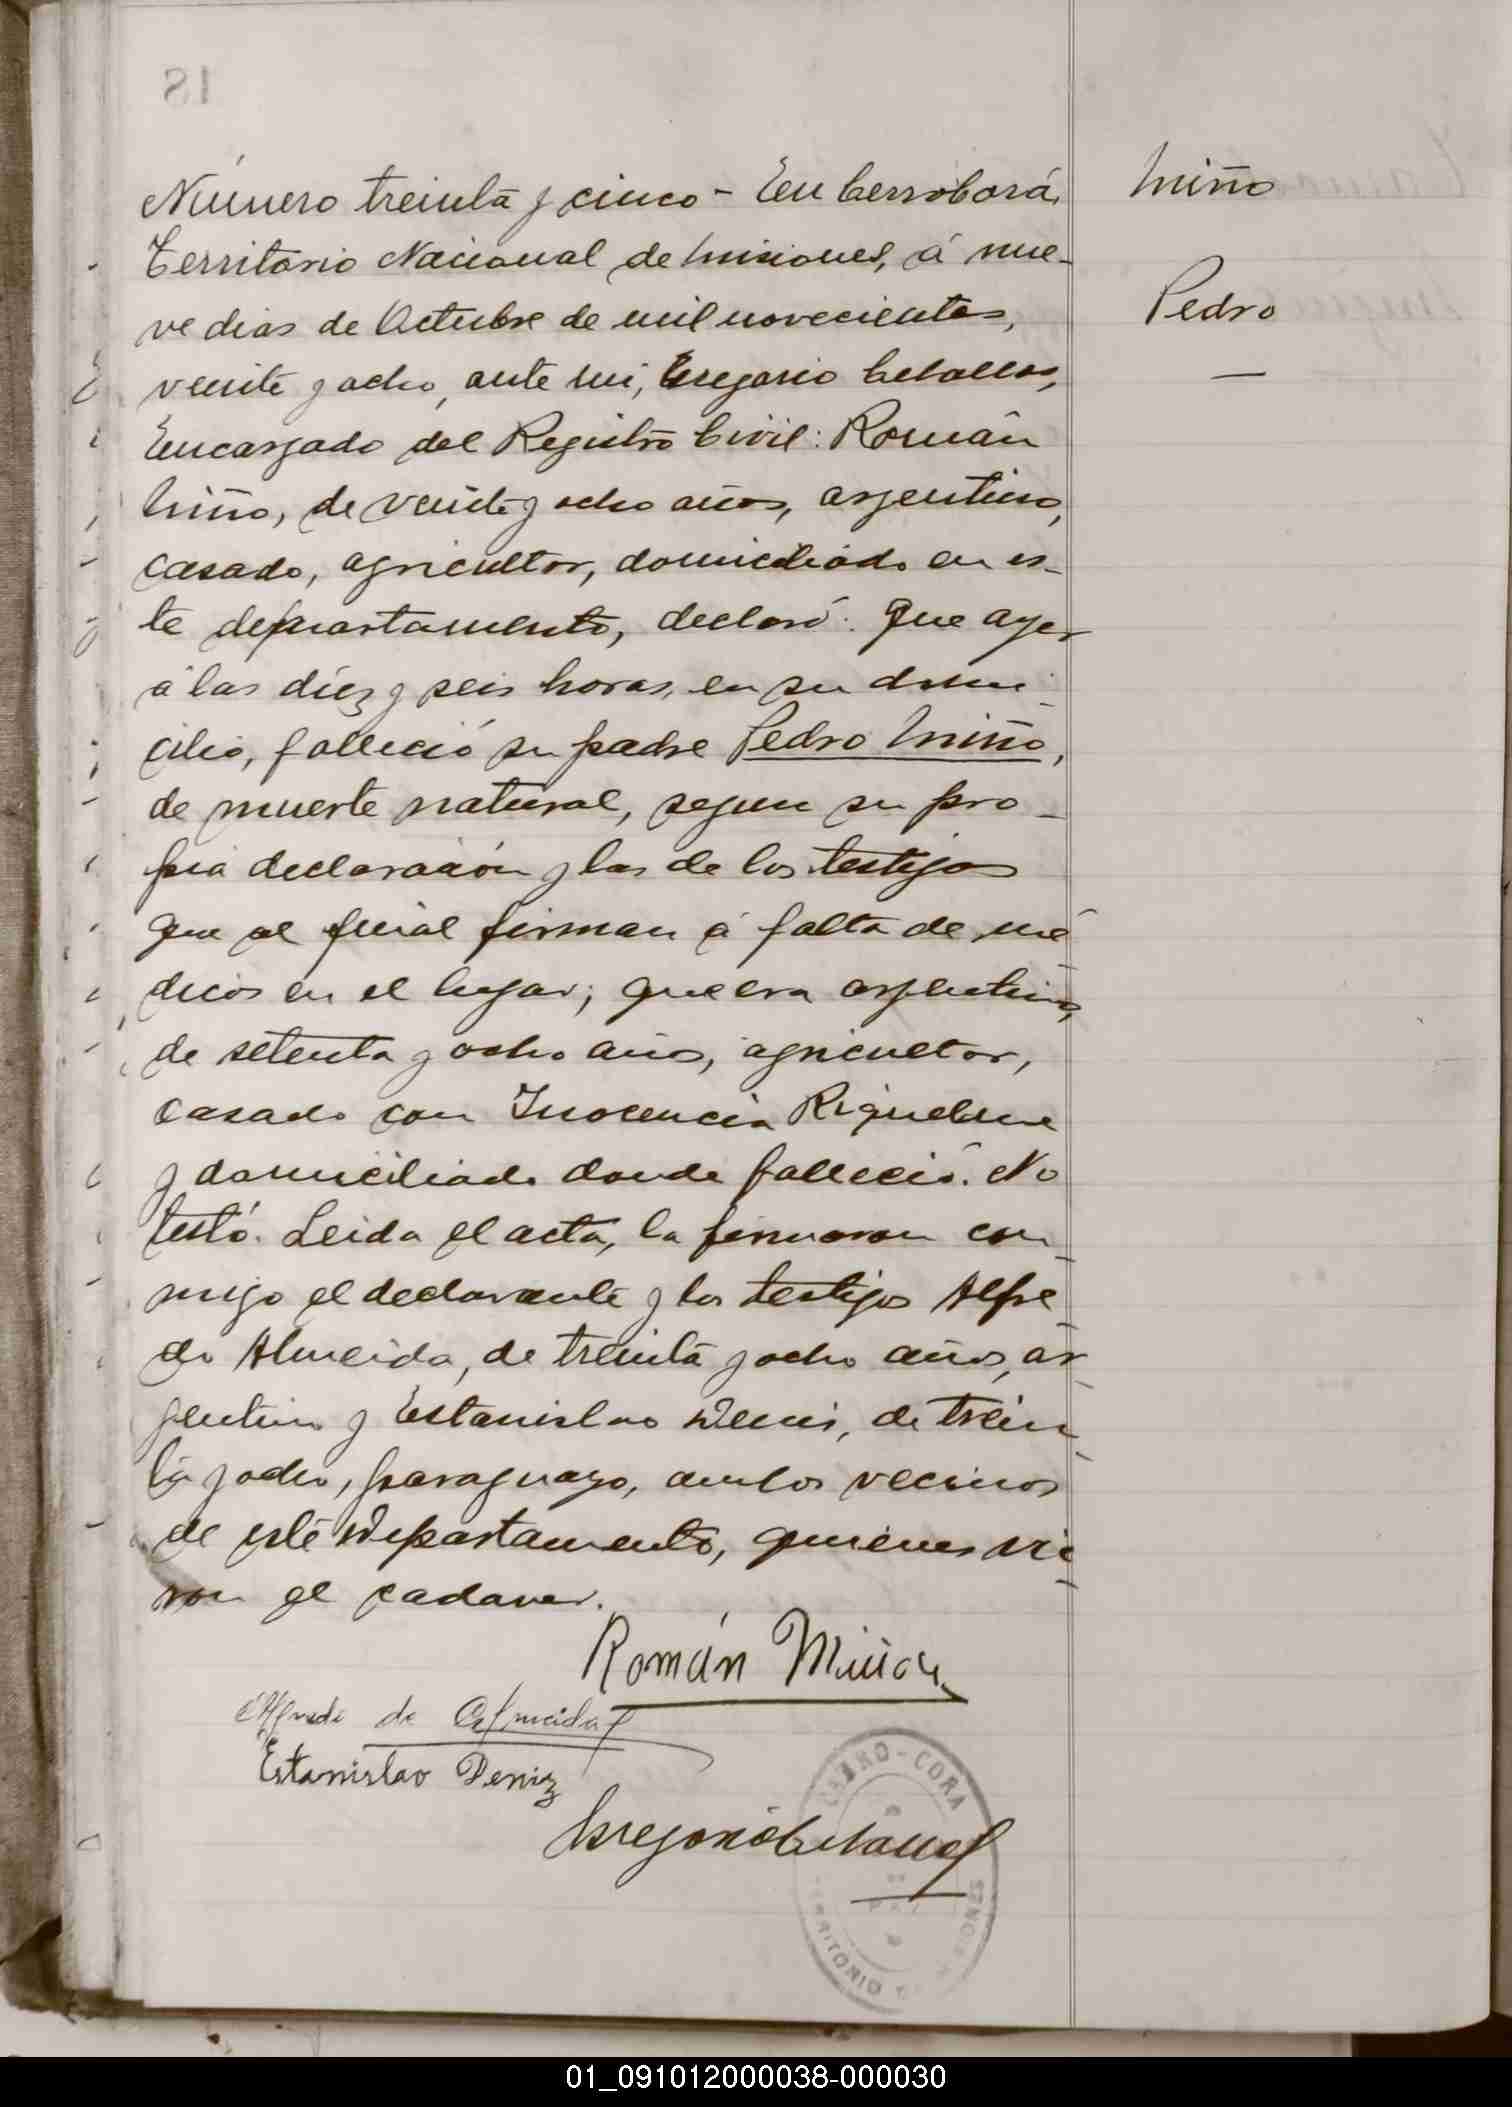 Miño
Pedro
Número treinta y cinco - En Cerro Corá,
Territorio Nacional de Misiones, á nue-
ve dias de Octubre de mil novecientos,
veinte y ocho, ante mi, Gregorio Ceballos,
Encargado del Registro Civil: Román
Miño, de veinte y ocho años, argentino,
casado, agricultor, domiciliado en es-
te departamento, declaró: Que ayer
á las diez y seis horas, en su domi-
cilio, falleció su padre Pedro Miño,
de muerte natural, segun su pro-
pia declaración y las de los testigos
que al final firman á falta de mé-
dicos en el lugar; que era argentino,
de setenta y ocho años, agricultor,
casado con Inocencia Riquelme
y domiciliado donde falleció. No
testó. Leida el acta, la firmaron con-
migo el declarante y los testigos Alfre-
do Almeida, de treinta y ocho años, ar-
gentino y Estanislao Denis, de trein-
ta y ocho, paraguayo, ambos vecinos
de este Departamento, quienes vie-
ron el cadaver.
Román Miño
Alfredo de Almeida
Estanislao Deniz
Gregorio Ceballos
CERRO-CORA
TERRITORIO MISIONES
18
01_091012000038-000030